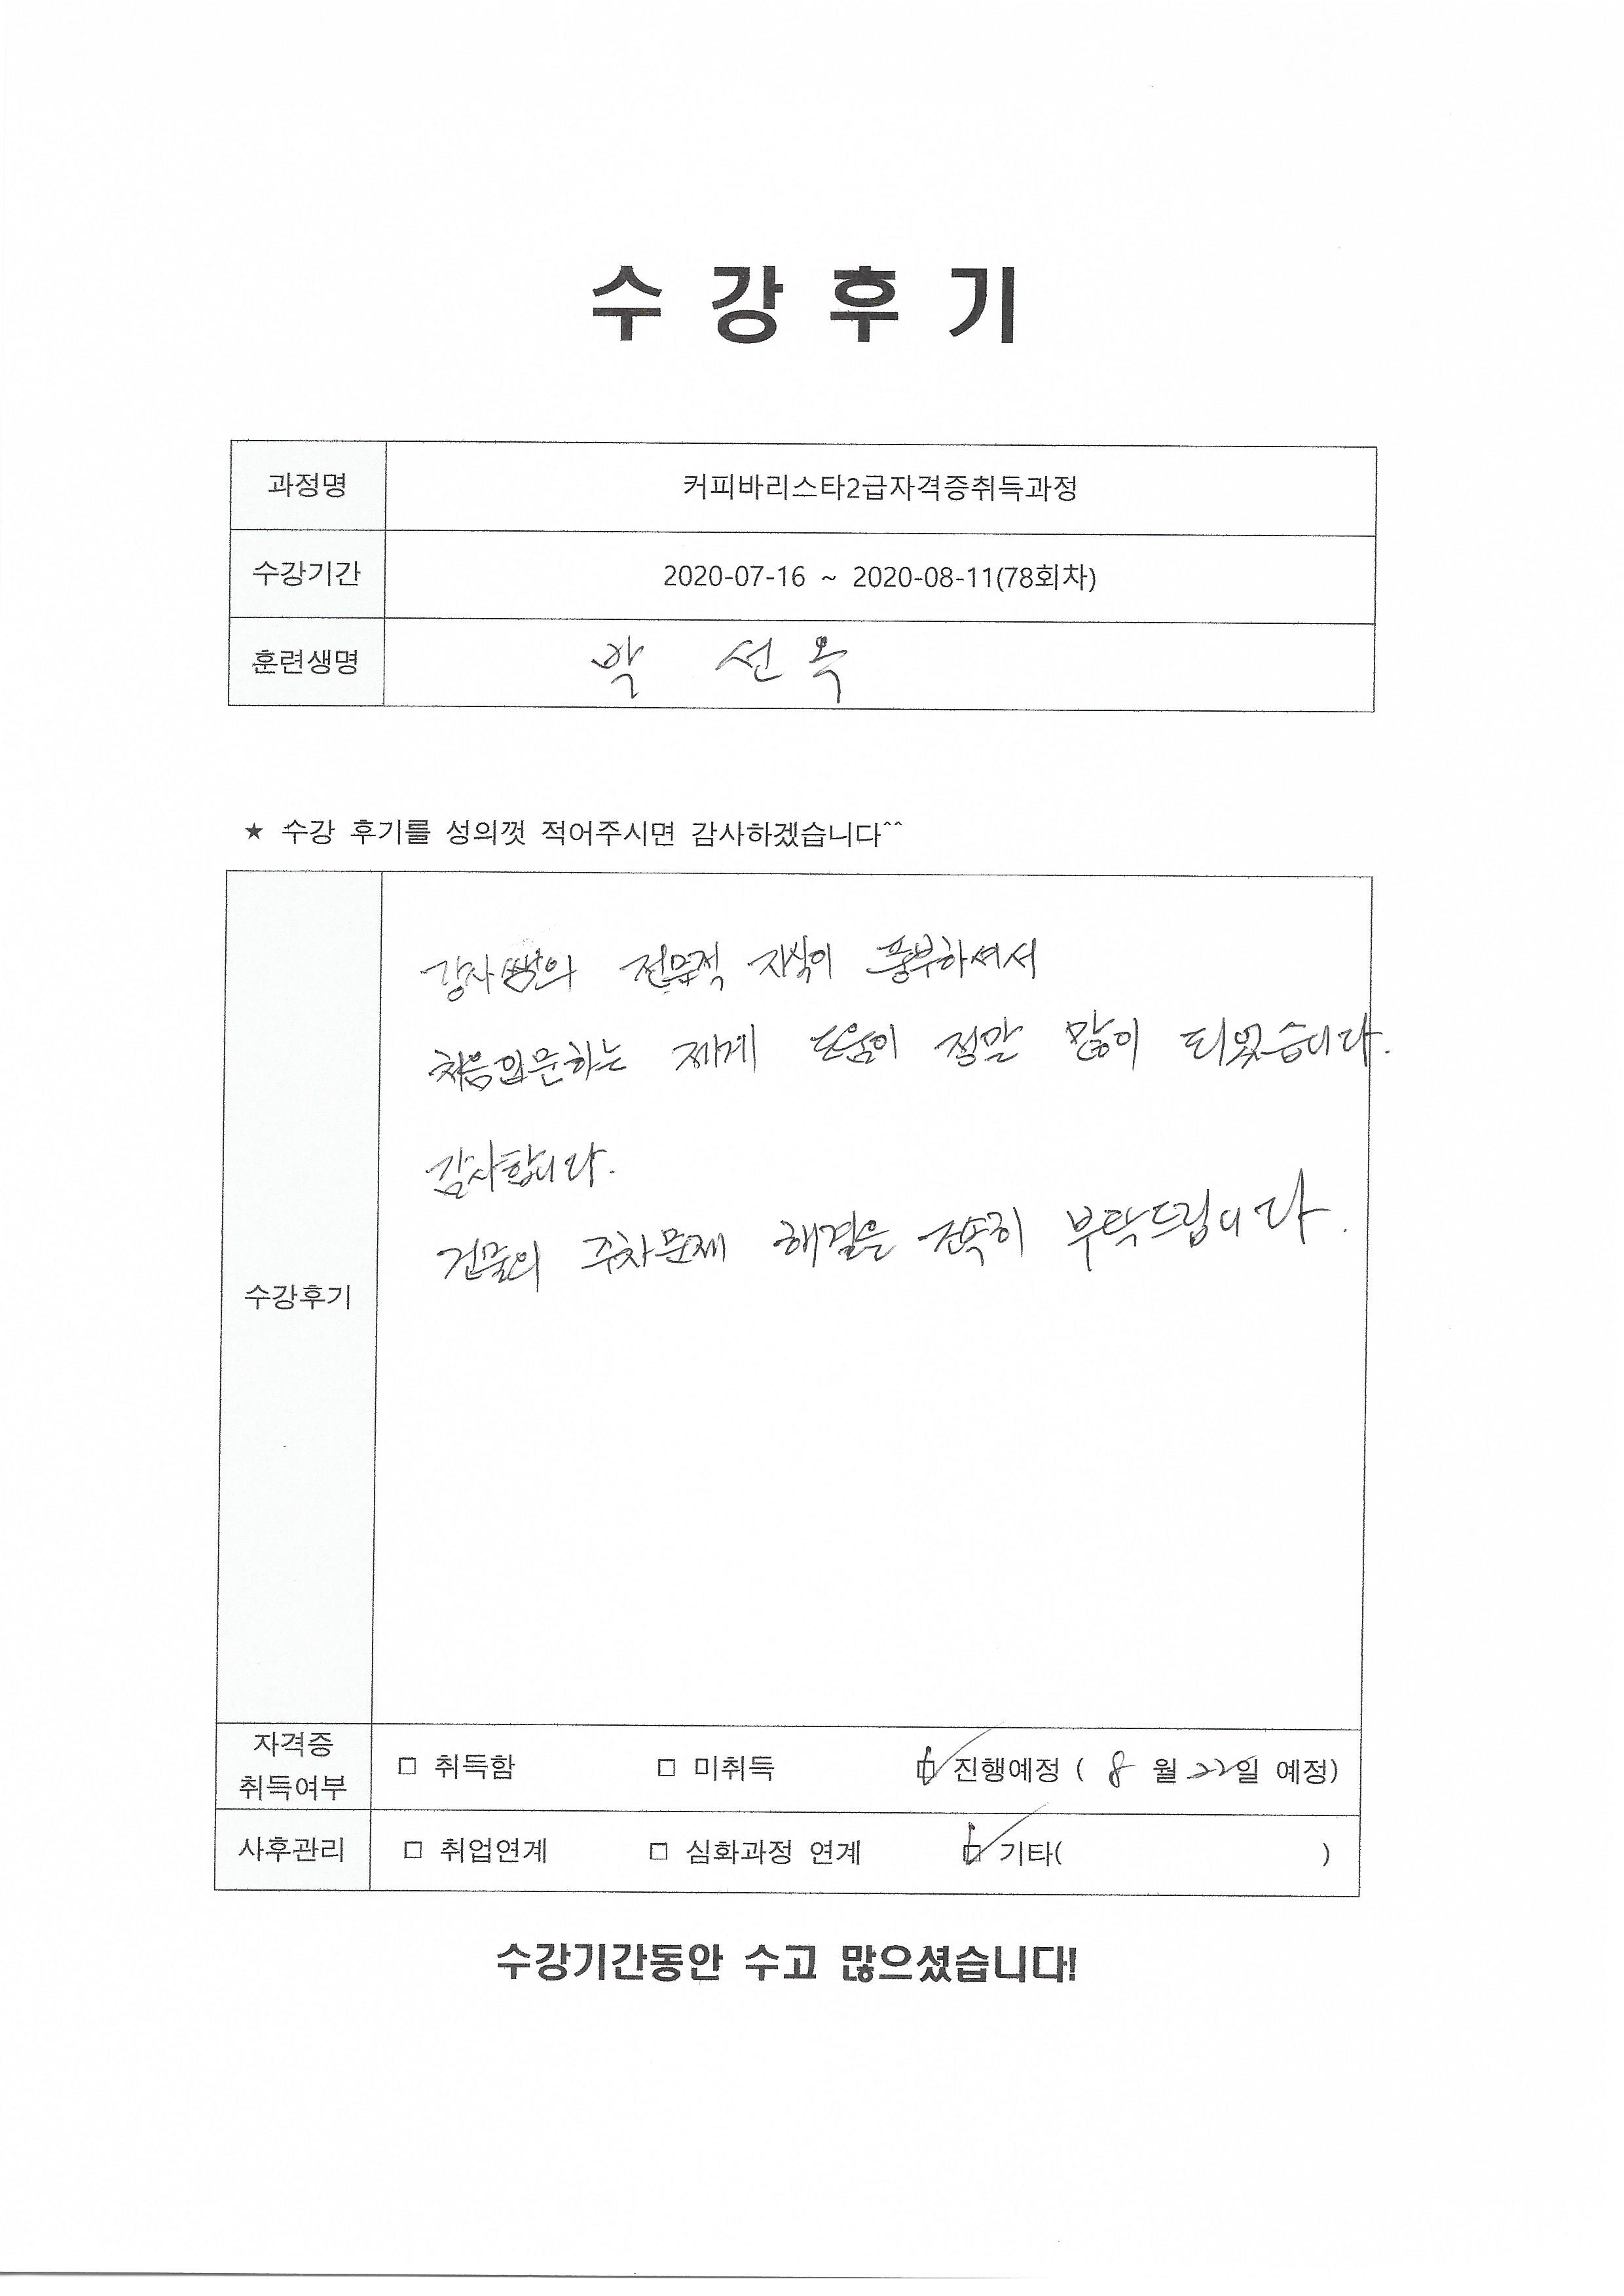 수 강 후 기
과정명 커피바리스타2급자격증취득과정
수강기간 2020-07-16 ~ 2020-08-11(78회차)
훈련생명 박 선 옥
★ 수강 후기를 성의껏 적어주시면 감사하겠습니다^^
강사쌤의 전문적 지식이 풍부하셔서
처음입문하는 제게 도움이 정말 많이 되었습니다.
감사합니다.
수강후기
건물의 주차문제 해결을 부탁드립니다.
자격증
취득여부
□ 취득함 □ 미취득 □ 진행예정 ( 8 월 22일 예정)
사후관리 □ 취업연계 □ 심화과정 연계 □ 기타( )
수강기간동안 수고 많으셨습니다!